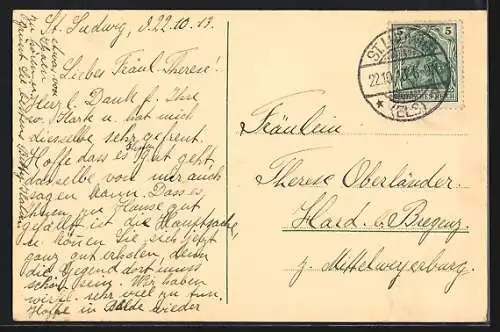 St. Ludwig, d. 22.10.13.
Liebes Fräul. Therese!
Herzl. Dank f. Ihre
w. Karte u. hat mich
dieselbe sehr gefreut.
Hoffe dass es Ihnen gut geht
dasselbe von mir auch
sagen kann. Dass es
Ihnen zu Hause gut
gefällt ist die Hauptsache,
u. können Sie sich jetzt
ganz gut erholen, denn
die Gegend dort muss
schön sein. Wir haben
wirkl. sehr viel zu tun.
Hoffe in Bälde wieder
etwas von
Ihnen
zu hören
grüsst Sie bestens
ST. LUDWIG
22.10.
* (ELS)
5
Fräulein
Therese Oberländer
Hard b. Bregenz
z. Mittelweyerburg.